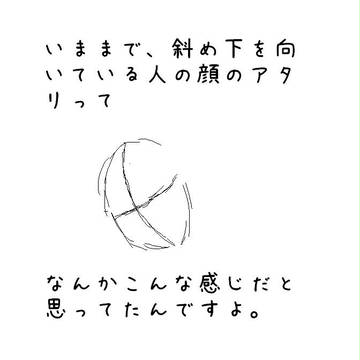 いままで、斜め下を向
いている人の顔のアタ
リって
なんかこんな感じだと
思ってたんですよ。